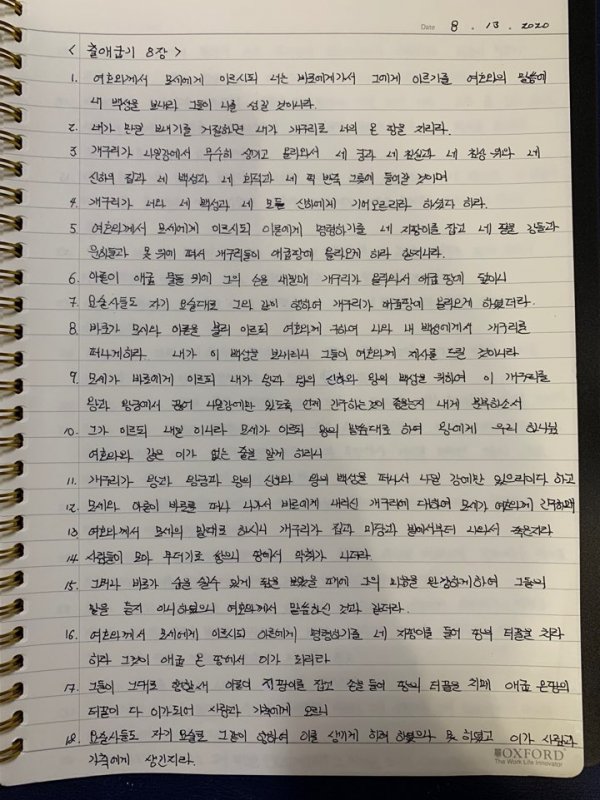 Date 8 . 13 . 2020
< 출애굽기 8장 >
1. 여호와께서 모세에게 이르시되 너는 바로에게가서 그에게 이르기를 여호와의 말씀에
내 백성을 보내라 그들이 나를 섬길 것이니라.
2. 네가 만일 보내기를 거절하면 내가 개구리로 너의 온 땅을 치리라.
3 개구리가 나일강에서 무수히 생기고 올라와서 네 궁과 네 침실과 네 침상 위와 네
신하의 집과 네 백성과 네 화덕과 네 떡 반죽 그릇에 들어갈 것이며
4. 개구리가 너와 네 백성과 네 모든 신하에게 기어오르리라 하셨다 하라.
5 여호와께서 모세에게 이르시되 아론에게 명령하기를 네 지팡이를 잡고 네 팔을 강들과
운하들과 못 위에 펴서 개구리들이 애굽땅에 올라오게 하라 할지니라.
6. 아론이 애굽 물들 위에 그의 손을 내밀매 개구리가 올라와서 애굽 땅에 덮이니
7 요술사들도 자기 요술대로 그와 같이 행하여 개구리가 애굽땅에 올라오게 하였더라.
8. 바로가 모세와 아론을 불러 이르되 여호와께 구하여 나와 내 백성에게서 개구리를
떠나게하라. 내가 이 백성을 보내리니 그들이 여호와께 제사를 드릴 것이니라
9. 모세가 바로에게 이르되 내가 왕과 왕의 신하와 왕의 백성을 위하여 이 개구리를
왕과 왕궁에서 끊어 나일강에만 있도록 언제 간구하는것이 좋을는지 내게 분부하소서
10. 그가 이르되 내일 이니라 모세가 이르되 왕의 말씀대로 하여 왕에게 우리 하나님
여호와와 같은 이가 없는 줄을 알게 하리니
11. 개구리가 왕과 왕궁과 왕의 신하와 왕의 백성을 떠나서 나일 강에만 있으리이다 하고
12 모세와 아론이 바로를 떠나 나가서 바로에게 내리신 개구리에 대하여 모세가 여호와께 간구하매
13 여호와께서 모세의 말대로 하시니 개구리가 집과 마당과 밭에서부터 나와서 죽은지라
14 사람들이 모아 무더기로 쌓으니 땅에서 악취가 나더라.
15. 그러나 바로가 숨을 쉴수 있게 됨을 보았을 때에 그의 마음을 완강하게하여 그들의
말을 듣지 아니하였으니 여호와께서 말씀하신 것과 같더라.
16. 여호와께서 모세에게 이르시되 아론에게 명령하기를 네 지팡이를 들어 땅의 티끌을 치라
하라 그것이 애굽 온 땅에서 이가 되리라
17. 그들이 그대로 행할새 아론이 지팡이를 잡고 손을 들어 땅의 티끌을 치매 애굽 온땅의
티끌이 다 이가되어 사람과 가축에게 오르니
18. 요술사들도 자기 요술로 그같이 행하여 이를 생기게 하려 하였으나 못 하였고 이가 사람과
가축에게 생긴지라.
OXFORD
The Work Life Innovator